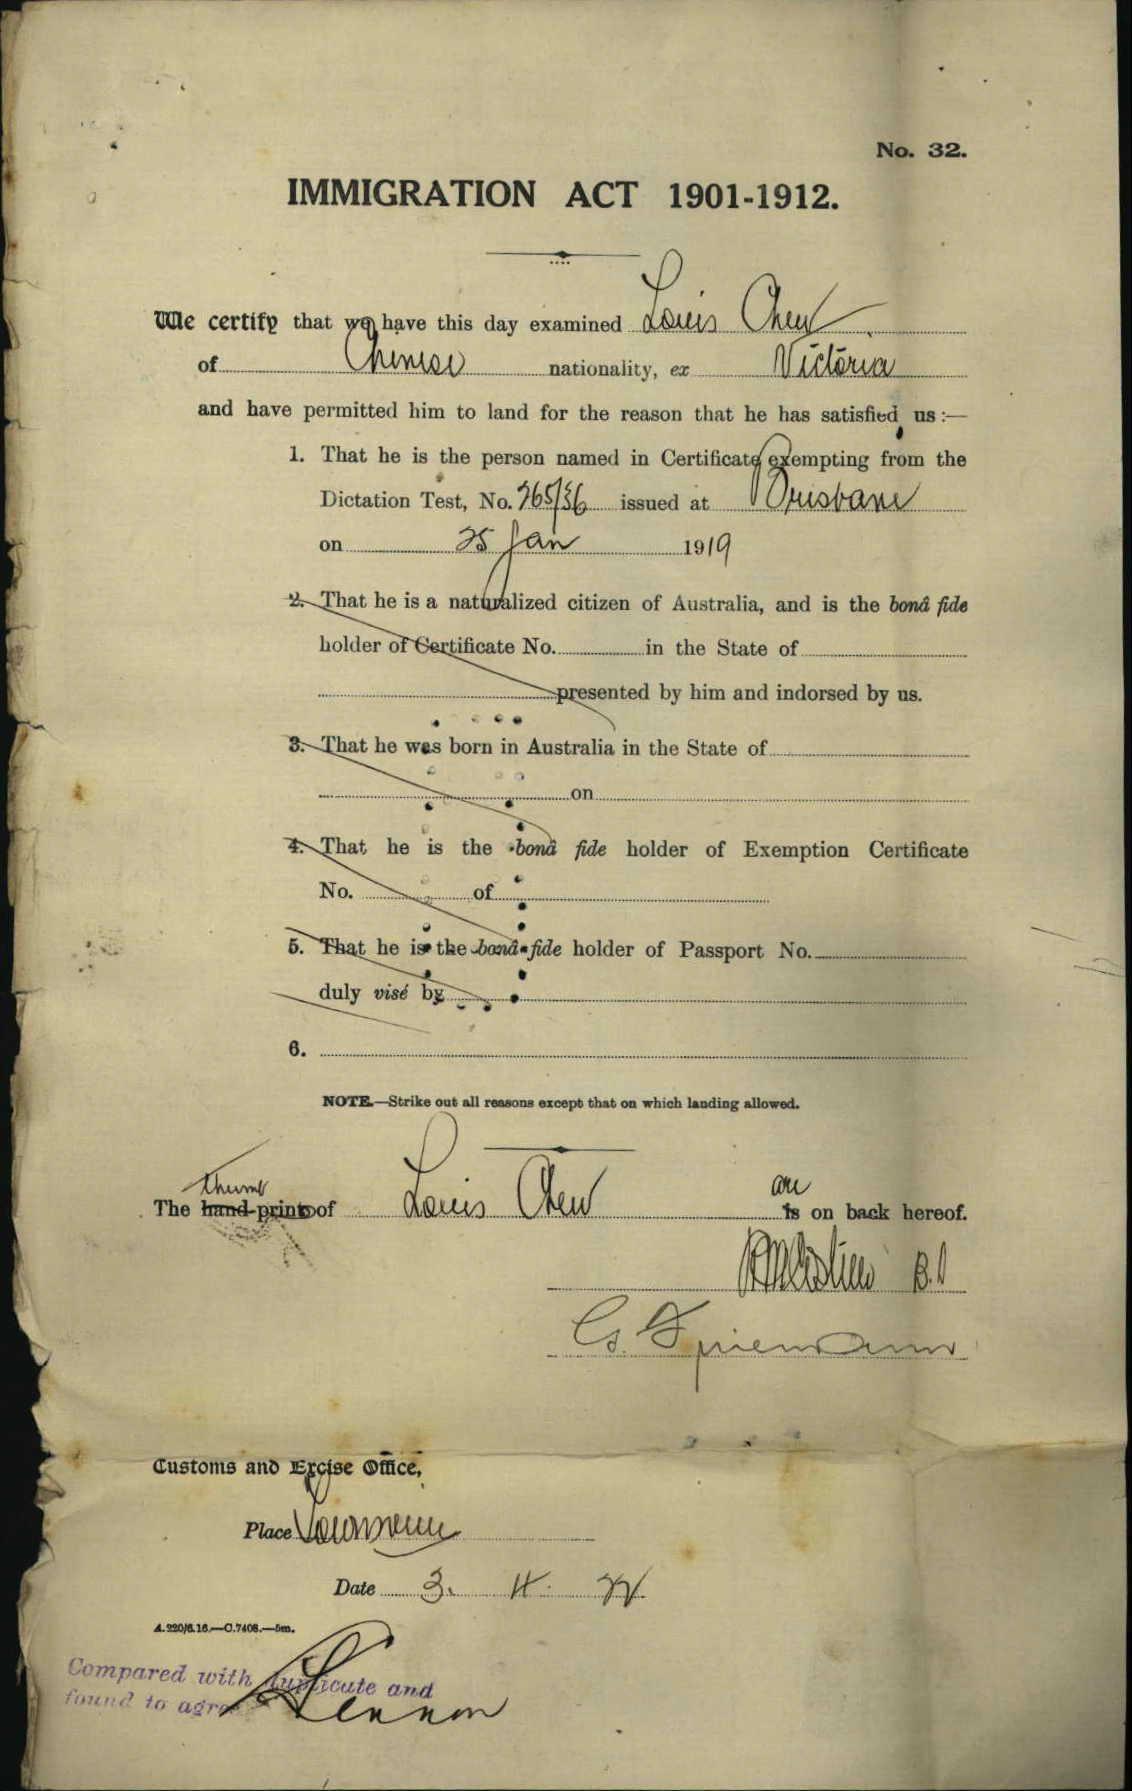 No. 32.
IMMIGRATION ACT 1901-1912.
We certify that we have this day examined Louis Chew
of Chinese nationality, ex Victoria
and have permitted him to land for the reason that he has satisfied us :—
1. That he is the person named in Certificate exempting from the
Dictation Test, No. 265/36 issued at Brisbane
on 25 Jan 1919
2. That he is a naturalized citizen of Australia, and is the bonâ fide
holder of Certificate No. in the State of
presented by him and indorsed by us.
3. That he was born in Australia in the State of
on
4. That he is the bonâ fide holder of Exemption Certificate
No. of
5. That he is the bonâ-fide holder of Passport No.
duly visé by
6.
NOTE.—Strike out all reasons except that on which landing allowed.
thumb are
The hand-prints of Louis Chew is on back hereof.
Customs and Excise Office,
Place Townsville
Date 3. 4. 22
A.220/6.16.—C.7408.—5m.
Compared with duplicate and
found to agree
Lennon